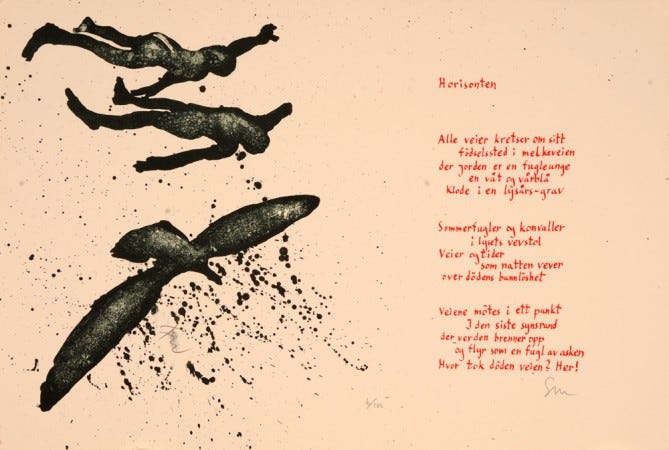 Horisonten
Alle veier kretser om sitt
födselssted i melkeveien
der jorden er en fugleunge
en våt og vårblå
klode i en lysårs-grav
Sommerfugler og konvaller
i lysets vevstol
Veier og tider
som natten vever
over dödens bunnlöshet
Veiene mötes i ett punkt
I den siste synsrand
der verden brenner opp
og flyr som en fugl av asken
Hvor tok döden veien? Her!